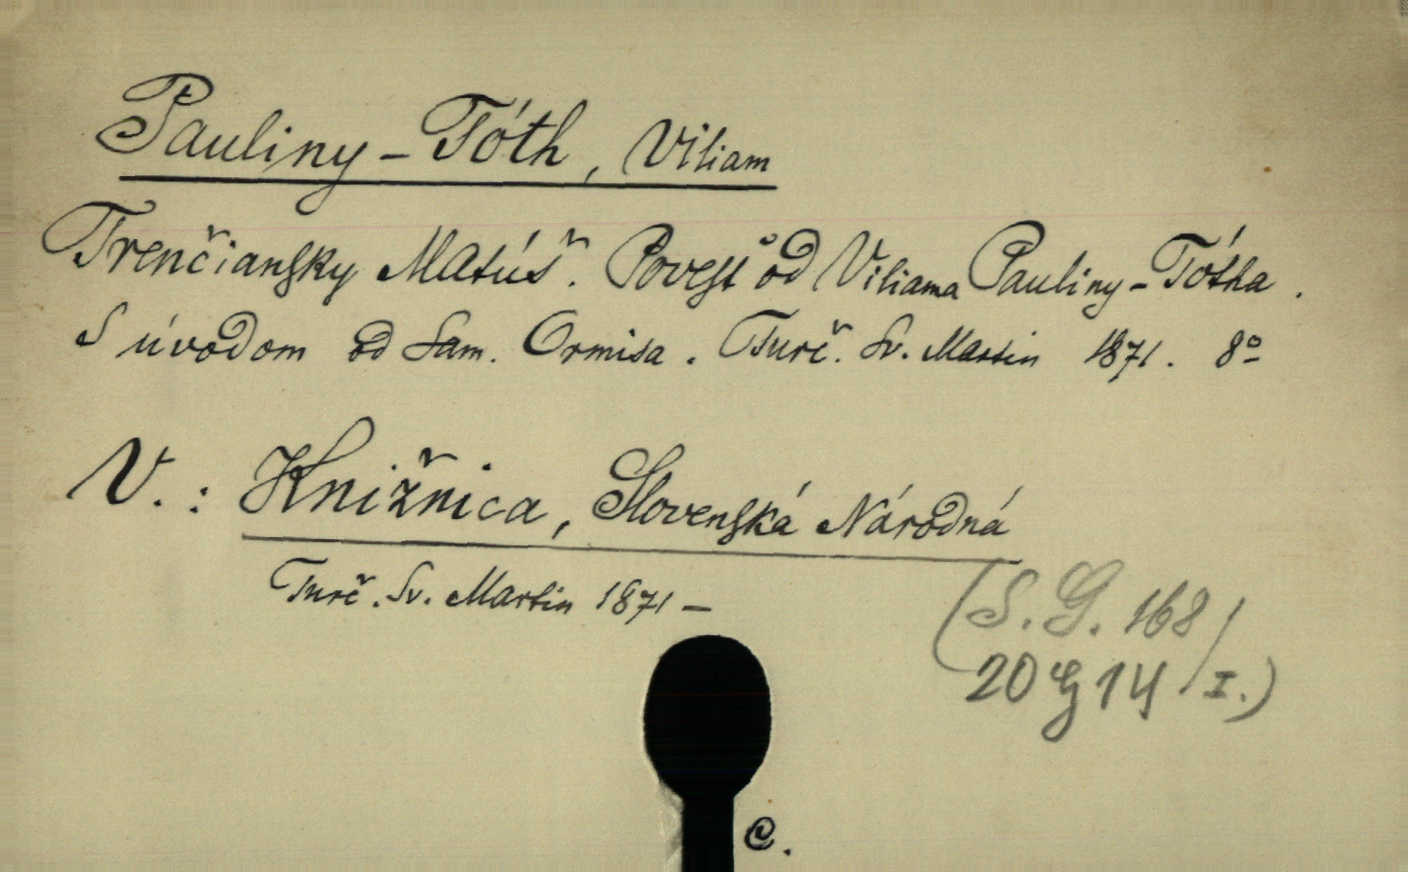 Pauliny-Tóth, Viliam
Trenčiansky Matúš. Povesť od Viliama Pauliny-Tótha.
S úvodom od Sam. Ormisa. Turč. Sv. Martin 1871. 8º
V.: Knižnica, Slovenská Národná
Turč. Sv. Martin 1871 –
(S. G. 168
20 G 14 / I.)
C.